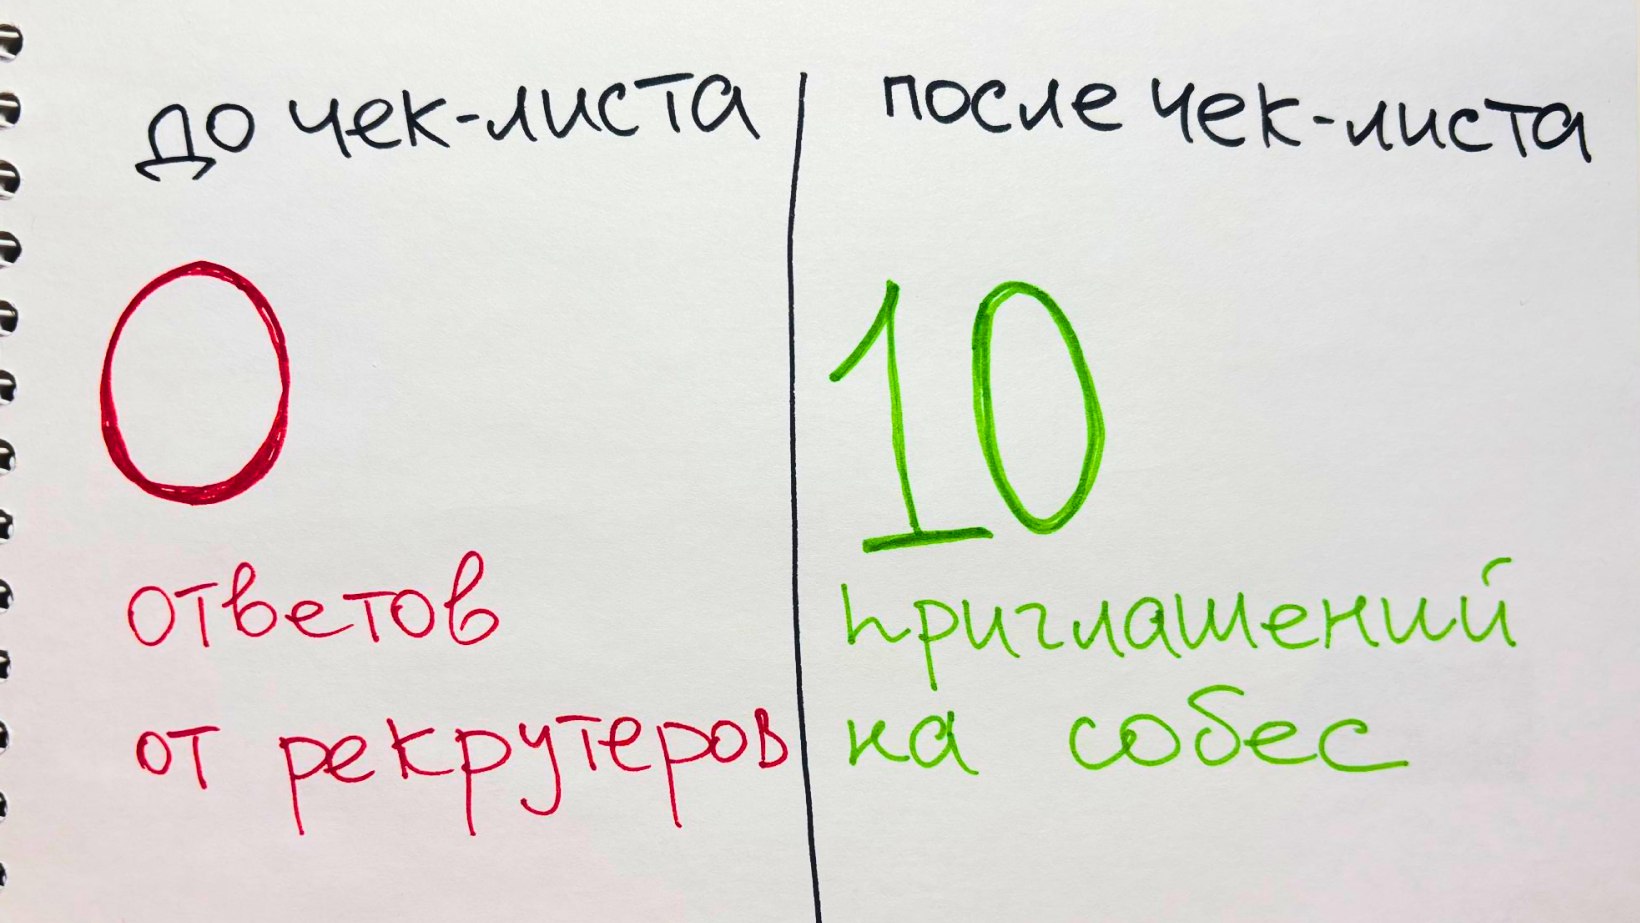 до чек-листа
после чек-листа
0
ответов
от рекрутеров
10
приглашений
на собес